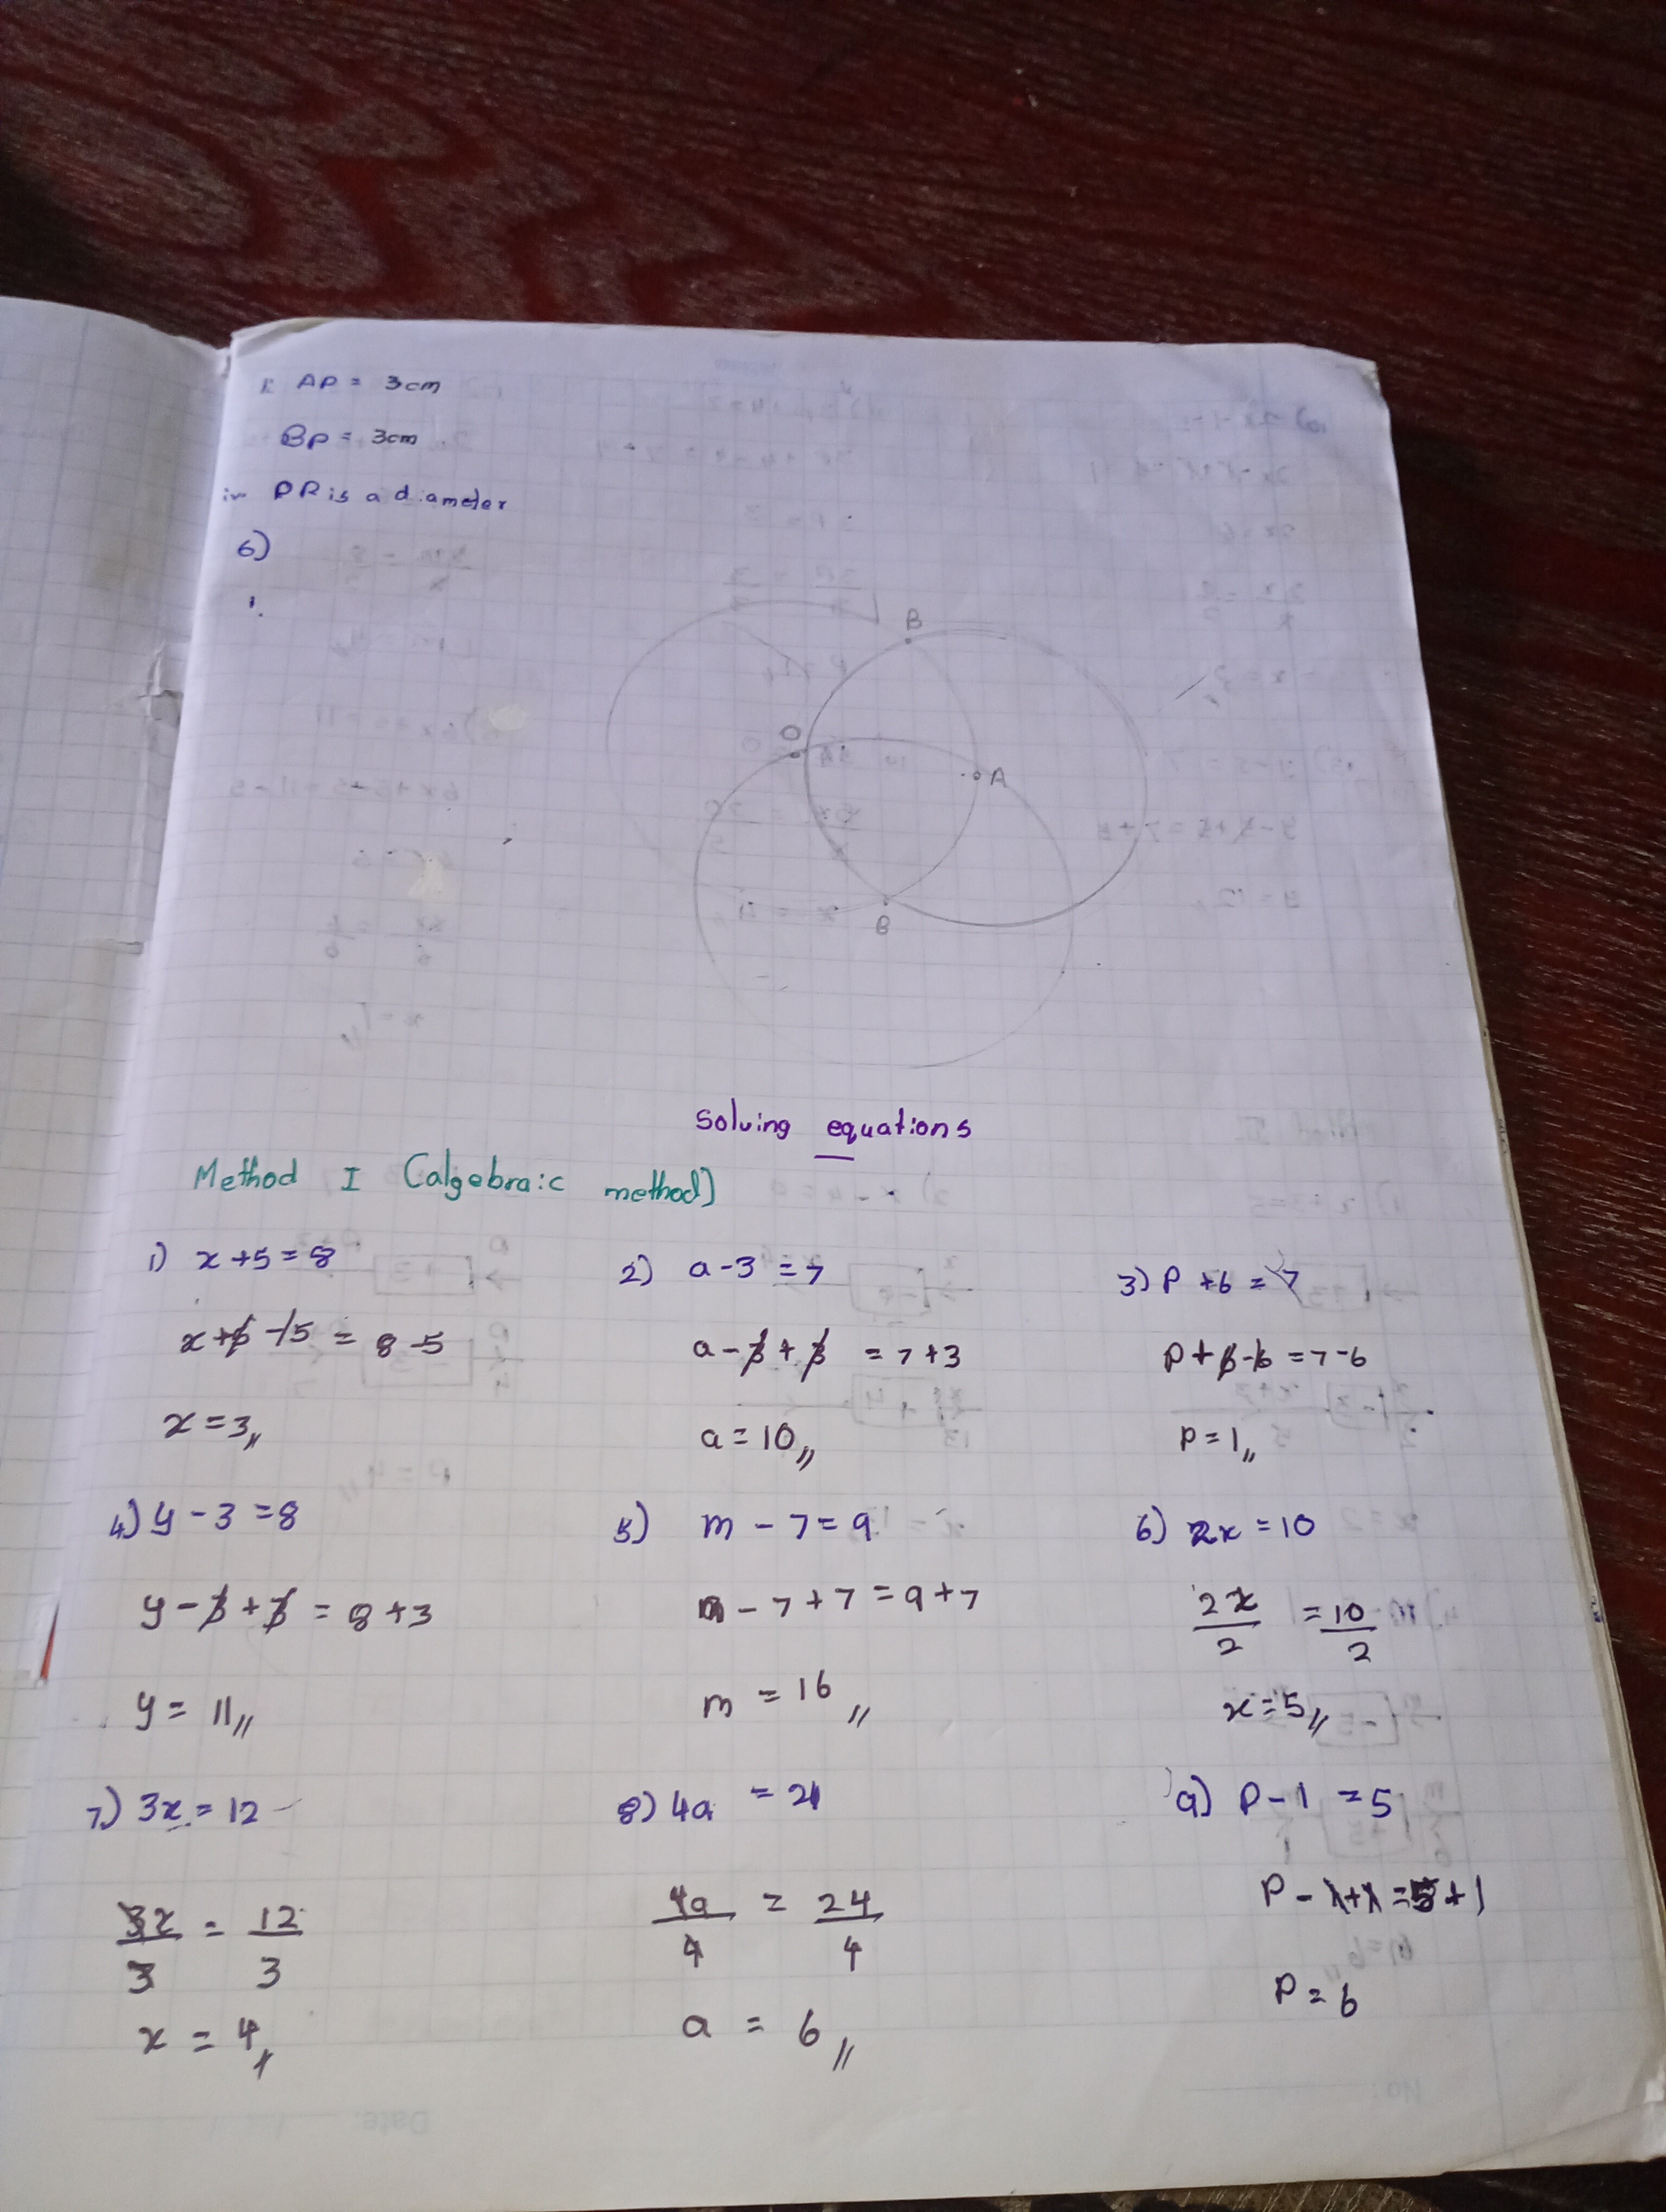 AP = 3cm
BP = 3cm
iv PR is a diameter
6)
i.
B
O
A
B
Solving equations
Method I (algebraic method)
1) x + 5 = 8
x + 5 - 5 = 8 - 5
x = 3
2) a - 3 = 7
a - 3 + 3 = 7 + 3
a = 10
3) P + 6 = 7
P + 6 - 6 = 7 - 6
P = 1
4) y - 3 = 8
y - 3 + 3 = 8 + 3
y = 11
5) m - 7 = 9
m - 7 + 7 = 9 + 7
m = 16
6) 2x = 10
2x/2 = 10/2
x = 5
7) 3x = 12
3x/3 = 12/3
x = 4
8) 4a = 24
4a/4 = 24/4
a = 6
9) P - 1 = 5
P - 1 + 1 = 5 + 1
P = 6